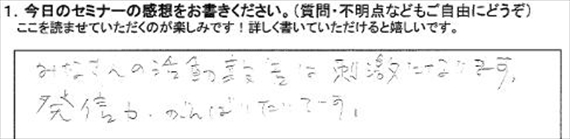 1. 今日のセミナーの感想をお書きください。（質問・不明点などもご自由にどうぞ）
ここを読ませていただくのが楽しみです！詳しく書いていただけると嬉しいです。
みなさんの活動報告は刺激になります。
発信力、がんばりたいでーす。